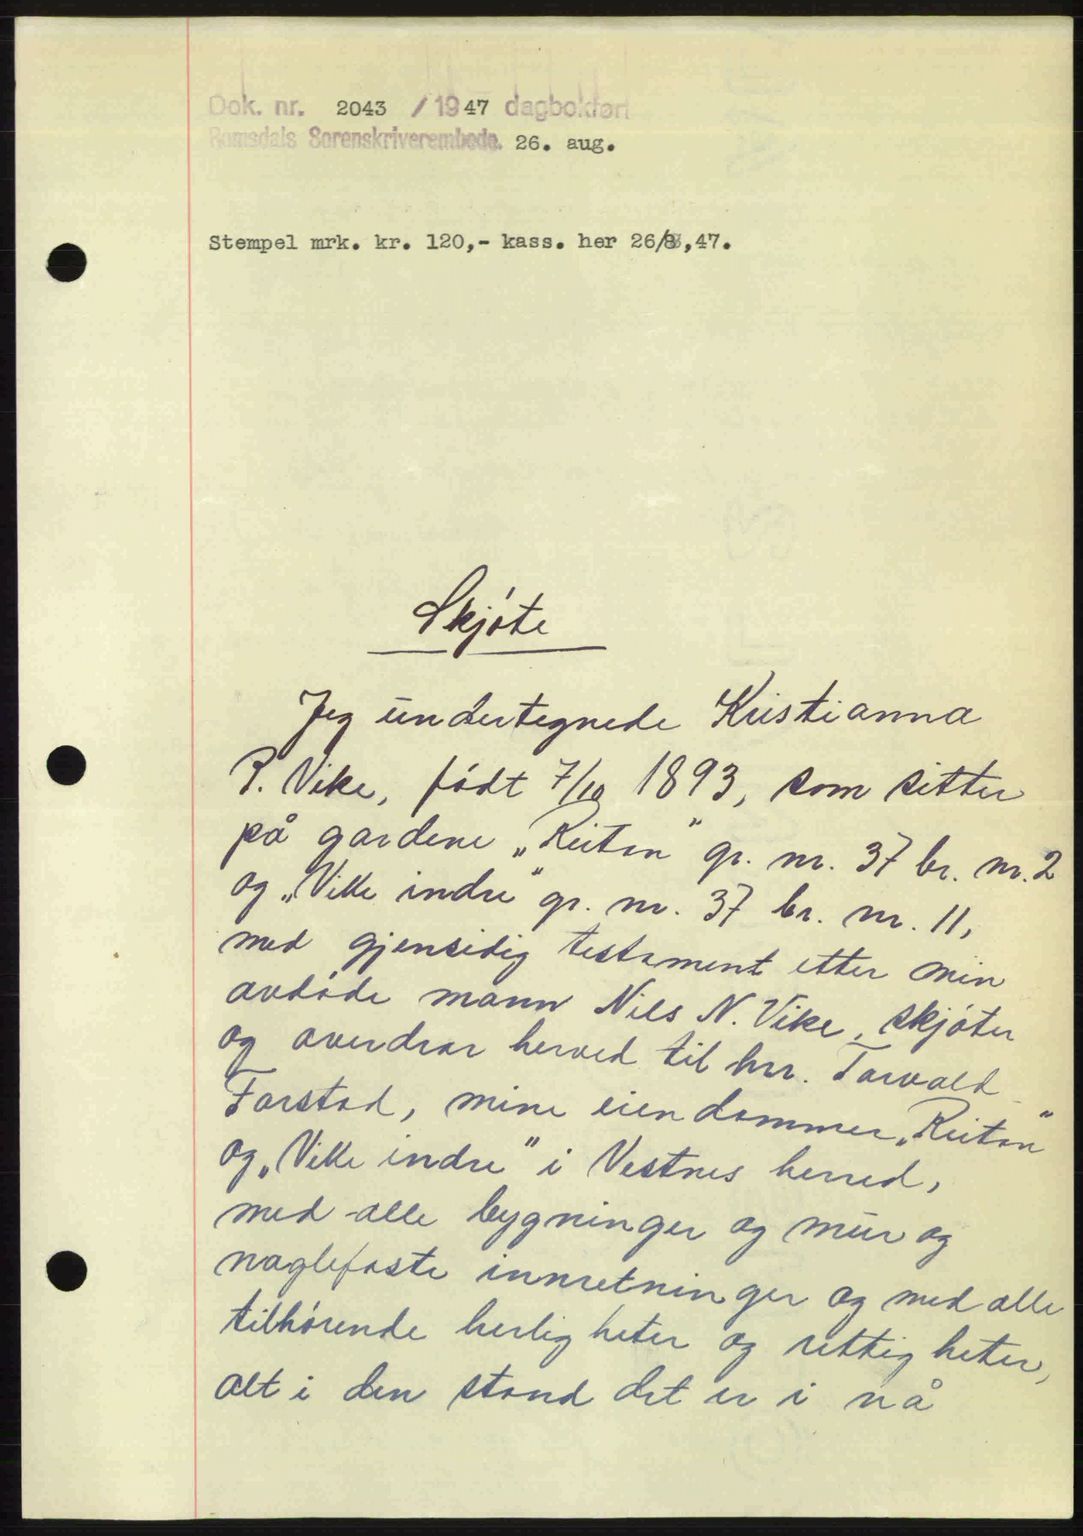 Dok. nr. 2043 / 1947 dagbokført
Romsdals Sorenskriverembede. 26. aug.
Stempel mrk. kr. 120,- kass. her 26/8,47.
Skjøte
Jeg undertegnede Kristianna
P. Vike, født 7/10 1893, som sitter
på gardene „Reiton" gr. nr. 37 br. nr. 2
og „Vike indre" gr. nr. 37 br. nr. 11,
med gjensidig testament etter min
avdøde mann Nils N. Vike, skjøter
og overdrar herved til hrr. Torvald
Farstad, mine eiendommer „Reiton"
og „Vike indre" i Vestnes herred,
med alle bygninger og mur og
naglefaste innretninger og med alle
tilhørende herligheter og rettigheter,
alt i den stand det er i nå